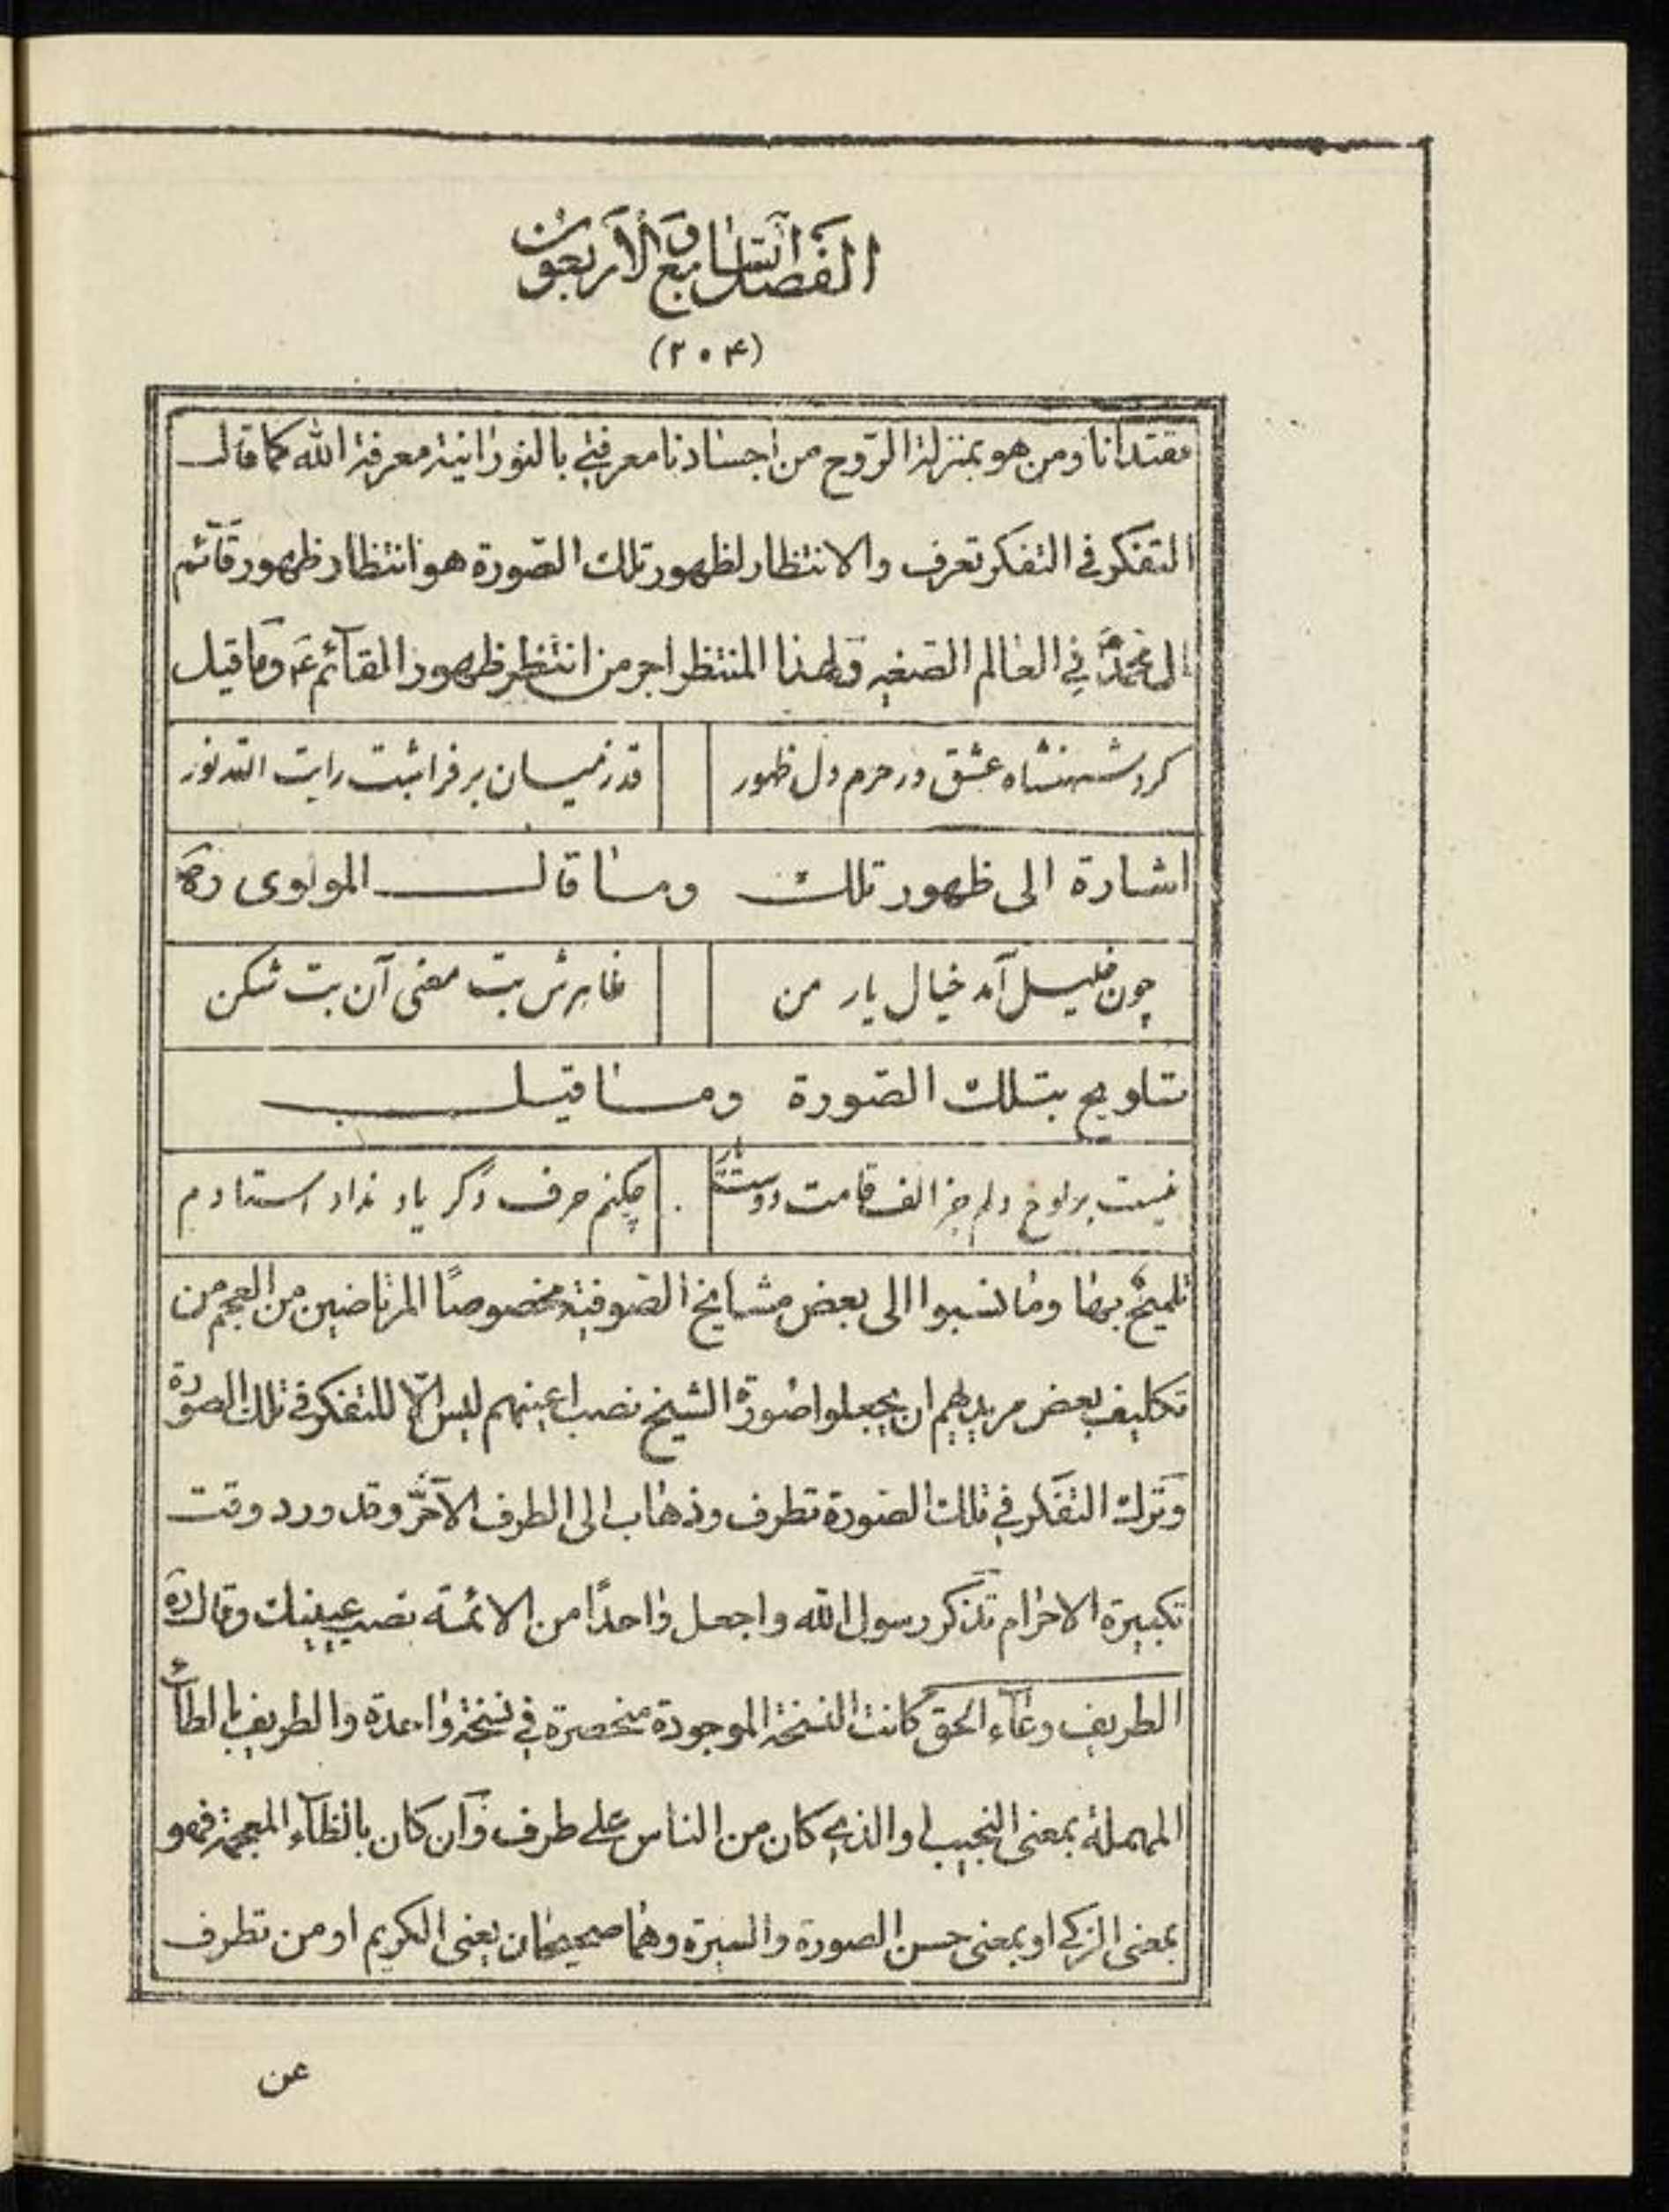 الفصل السابع والاربعون
(۲۰۴)
مقتدانا ومن هو بمنزلة الروح من اجسادنا معرفتي بالنورانية معرفة الله كما قال
التفكر في التفكر تعرف والانتظار لظهور تلك الصورة هو انتظار ظهور قائم
ال محمد في العالم الصغير ولهذا المنتظر اجر من انتظر ظهور القائم ع وما قيل
كرد شهنشاه عشق در حرم دل ظهور
قد زميان بر فراشت رايت الله نور
اشارة الى ظهور تلك وما قال المولوى ره
چون خليل آمد خيال يار من
ظاهرش بت معنى آن بت شكن
تلويح بتلك الصورة وما قيل
نيست بر لوح دلم جز الف قامت دوست يار
چكنم حرف دگر ياد نداد استادم
تلميح بها وما نسبوا الى بعض مشايخ الصوفية مخصوصًا المرتاضين من العجم من
تكليف بعض مريديهم ان يجعلوا صورة الشيخ نصب اعينهم ليس الّا للتفكر في تلك الصورة
وترك التفكر في تلك الصورة تطرف وذهاب الى الطرف الآخر وقد ورد وقت
تكبيرة الاحرام تذكر رسول الله واجعل واحدًا من الائمة نصب عينيك وقال ره
الطريف وعاء الحق كانت النسخة الموجودة منحصرة في نسخة واحدة والطريف بالطاء
المهملة بمعنى النجيب والذي كان من الناس على طرف وان كان بالظاء المعجمة فهو
بمعنى الزكي او بمعنى حسن الصورة والسيرة وهما صحيحان يعنى الكريم او من تطرف
عن